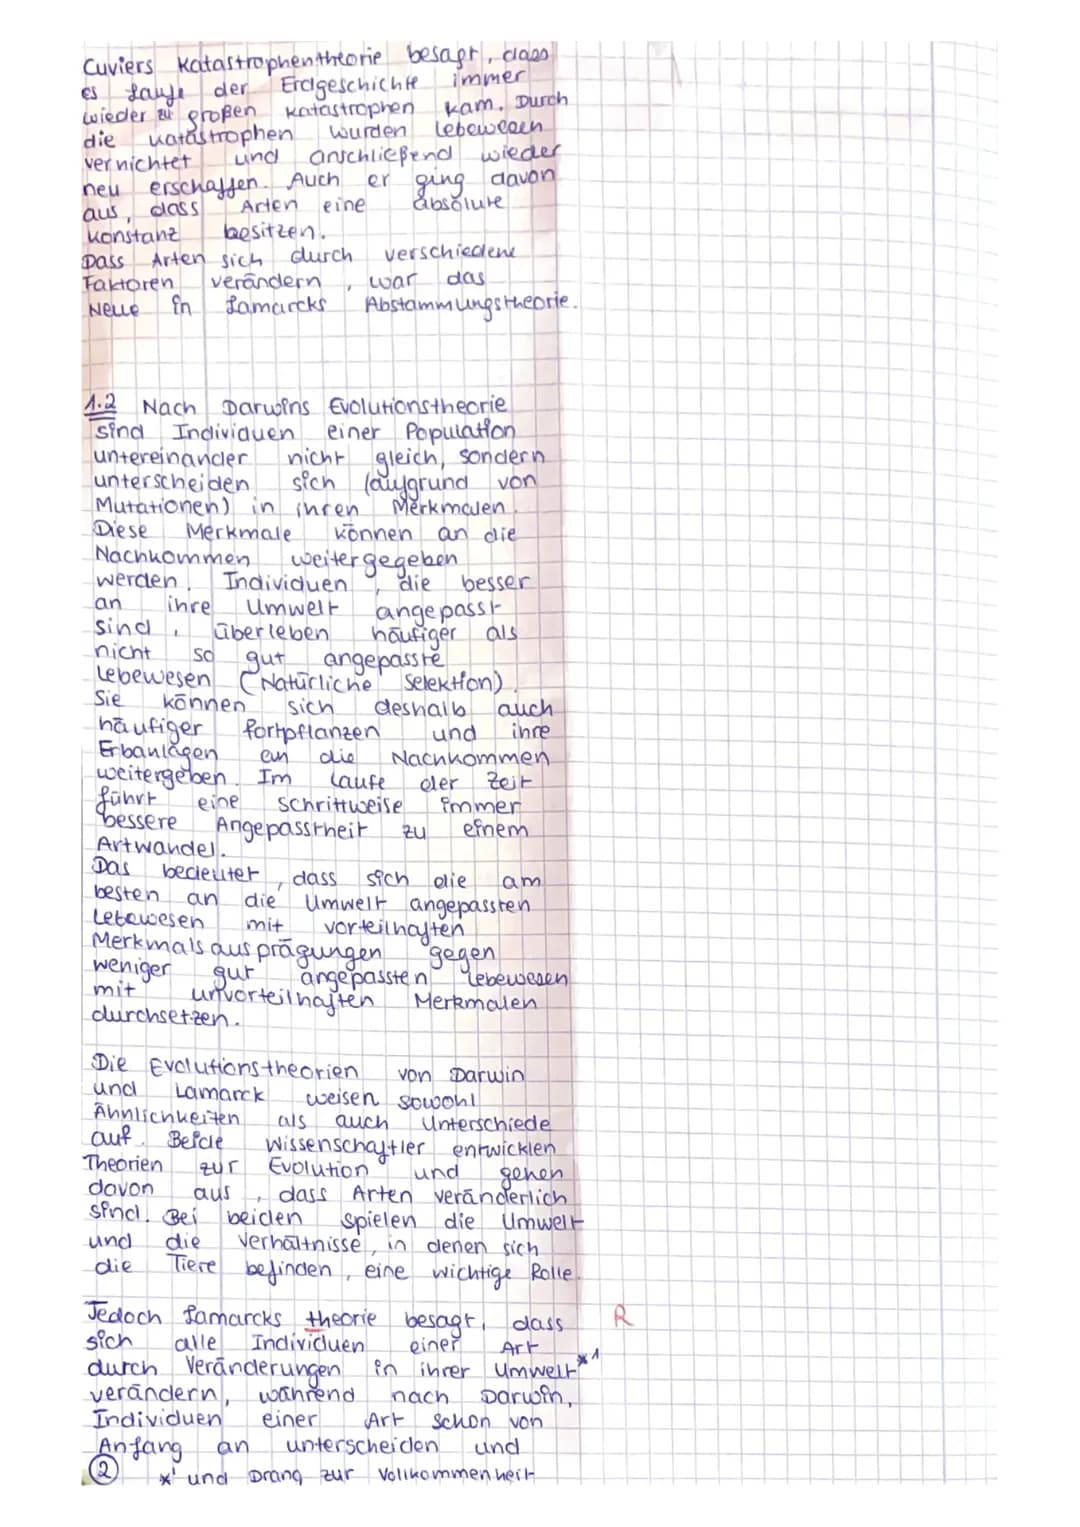 Cuviers Katastrophentheorie besagt, dass
es Laufe der Erdgeschichte immer
wieder zu großen Katastrophen kam. Durch
die Katastrophen wurden Lebewesen
vernichtet und anschließend wieder
neu erschaffen. Auch er ging davon
aus, dass Arten eine absolute
Konstanz besitzen.
Dass Arten sich durch verschiedene
Faktoren verändern, war das
Neue in Lamarcks Abstammungstheorie.
1.2 Nach Darwins Evolutionstheorie
sind Individuen einer Population
untereinander nicht gleich, sondern
unterscheiden sich (aufgrund von
Mutationen) in ihren Merkmalen.
Diese Merkmale können an die
Nachkommen weitergegeben
werden. Individuen, die besser
an ihre Umwelt angepasst
sind, überleben häufiger als
nicht so gut angepasste
Lebewesen (Natürliche Selektion).
Sie können sich deshalb auch
häufiger fortpflanzen und ihre
Erbanlagen an die Nachkommen
weitergeben. Im Laufe der Zeit
führt eine schrittweise immer
bessere Angepasstheit zu einem
Artwandel.
Das bedeutet, dass sich die am
besten an die Umwelt angepassten
Lebewesen mit vorteilhaften
Merkmalsausprägungen gegen
weniger gut angepassten Lebewesen
mit unvorteilhaften Merkmalen
durchsetzen.
Die Evolutionstheorien von Darwin
und Lamarck weisen sowohl
Ähnlichkeiten als auch Unterschiede
auf. Beide Wissenschaftler entwicklen
Theorien zur Evolution und gehen
davon aus, dass Arten veränderlich
sind. Bei beiden spielen die Umwelt
und die Verhältnisse, in denen sich
die Tiere befinden, eine wichtige Rolle.
Jedoch Lamarcks theorie besagt, dass R
sich alle Individuen einer Art
durch Veränderungen in ihrer Umwelt *1
verändern, während nach Darwin,
Individuen einer Art schon von
Anfang an unterscheiden und
2 *1 und Drang zur Vollkommenheit